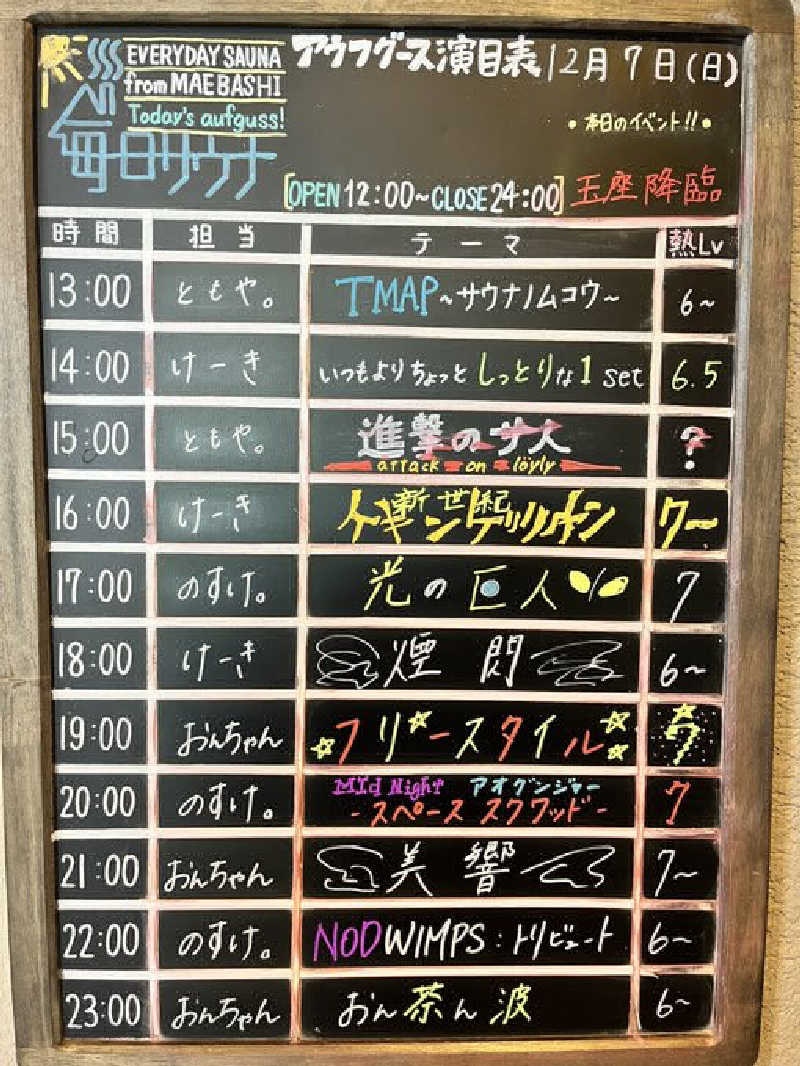 EVERYDAY SAUNA
from MAEBASHI
Today's aufguss!
毎日サウナ
アウフグース演目表 12月7日(日)
• 本日のイベント!! •
[OPEN 12:00~CLOSE 24:00] 玉座降臨
時間 担当 テーマ 熱Lv
13:00 ともや。 TMAP~サウナノムコウ~ 6~
14:00 けーき いつもよりちょっとしっとりな1set 6.5
15:00 ともや。 進撃のサ人 ?
attack on löyly
16:00 けーき 新世紀 7~
17:00 のすけ。 光の巨人 7
18:00 けーき 煙閃 6~
19:00 おんちゃん フリースタイル 7
20:00 のすけ。 MId Night アオグンジャー 7
-スペーススクワッド-
21:00 おんちゃん 美響 7~
22:00 のすけ。 NODWIMPS:トリビュート 6~
23:00 おんちゃん おん茶ん波 6~